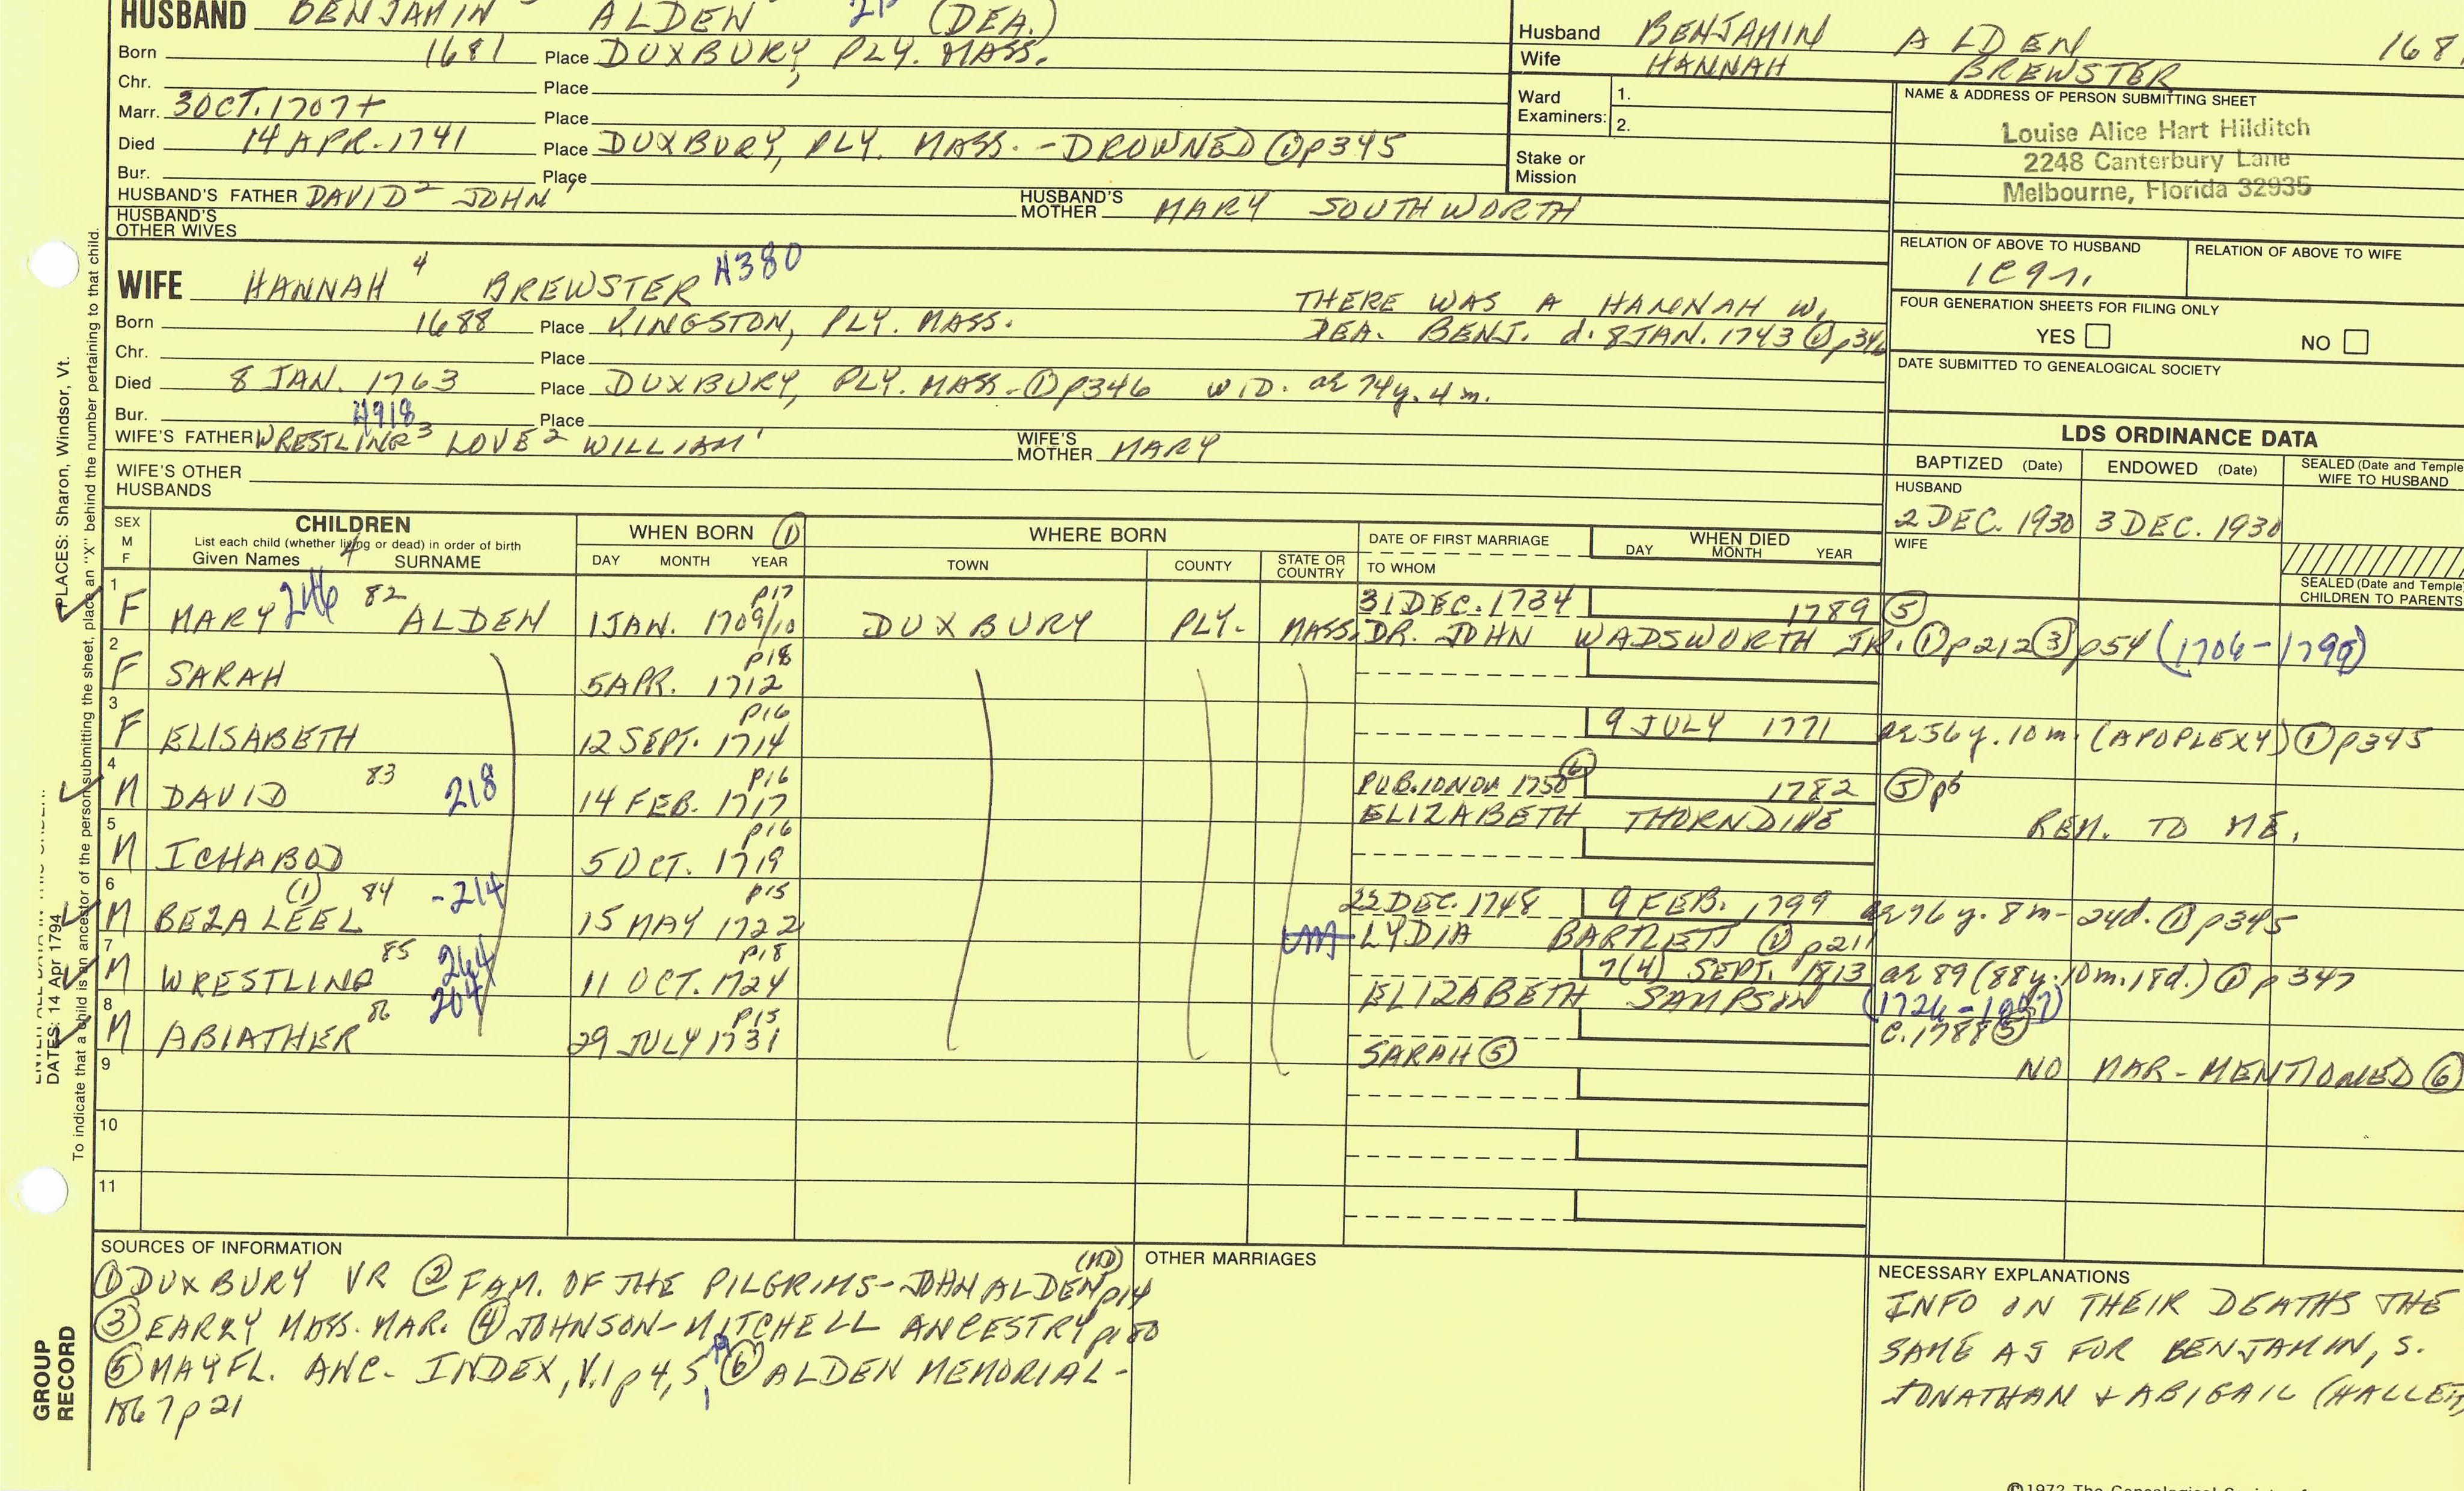 HUSBAND BENJAMIN ALDEN (DEA.)
Born 1681 Place DUXBURY, PLY. MASS.
Chr. Place
Marr. 30CT. 1707+ Place
Died 14 APR. 1741 Place DUXBURY, PLY. MASS. - DROWNED ① p345
Bur. Place
HUSBAND'S FATHER DAVID² JOHN¹ HUSBAND'S MOTHER MARY SOUTHWORTH
HUSBAND'S OTHER WIVES
Husband BENJAMIN ALDEN 168
Wife HANNAH BREWSTER
Ward Examiners: 1.
2.
Stake or Mission
NAME & ADDRESS OF PERSON SUBMITTING SHEET
Louise Alice Hart Hilditch
2248 Canterbury Lane
Melbourne, Florida 32935
RELATION OF ABOVE TO HUSBAND RELATION OF ABOVE TO WIFE
FOUR GENERATION SHEETS FOR FILING ONLY
YES NO
DATE SUBMITTED TO GENEALOGICAL SOCIETY
WIFE HANNAH⁴ BREWSTER H380
THERE WAS A HANNAH W,
Born 1688 Place KINGSTON, PLY. MASS. DEA. BENJ. d. 8 JAN. 1743 ① p346
Chr. Place
Died 8 JAN. 1763 Place DUXBURY, PLY. MASS - ① p346 WID. ae 74y. 4m.
Bur. Place
H918
WIFE'S FATHER WRESTLING³ LOVE² WILLIAM¹ WIFE'S MOTHER MARY
WIFE'S OTHER HUSBANDS
LDS ORDINANCE DATA
BAPTIZED (Date) ENDOWED (Date) SEALED (Date and Temple WIFE TO HUSBAND
HUSBAND
2 DEC. 1930 3 DEC. 1930
WIFE
SEALED (Date and Temple CHILDREN TO PARENTS
SEX M F CHILDREN List each child (whether living or dead) in order of birth Given Names 4 SURNAME
WHEN BORN ① DAY MONTH YEAR
WHERE BORN TOWN COUNTY STATE OR COUNTRY
DATE OF FIRST MARRIAGE TO WHOM
WHEN DIED DAY MONTH YEAR
p17 31 DEC. 1734 1789 ⑤
1 F MARY 246 82 ALDEN 1 JAN. 1709/10 DUXBURY PLY. MASS. DR. JOHN WADSWORTH JR. ① p212 ③ p54
2 F SARAH 5 APR. 1712 p18
3 F ELISABETH 12 SEPT. 1714 p16 9 JULY 1771 ae 56 y. 10 m. (APOPLEXY) ① p345
4 M DAVID 83 218 14 FEB. 1717 p16 PUB. 10 NOV 1750 ⑥ 1782 ⑤ p6
ELIZABETH THORNDIKE REM. TO ME.
5 M ICHABOD 5 OCT. 1719 p16
6 M BEZALEEL (1) 84 -214 15 MAY 1722 p15 DEC. 1748 9 FEB. 1799 ae 76 y. 8 m - 24d. ① p345
LYDIA BARTLETT ① p211
7 M WRESTLING 85 264 11 OCT. 1724 p18 7(4) SEPT. 1813 ae 89 (88y. 10m. 18d.) ① p347
ELIZABETH SAMPSON
8 M ABIATHER 86 204 29 JULY 1731 p15 c. 1788 ⑤
SARAH ⑤ NO MAR- MENTIONED ⑥
9
10
11
SOURCES OF INFORMATION
① DUXBURY VR ② FAM. OF THE PILGRIMS - JOHN ALDEN (MD) p14
③ EARLY MASS. MAR. ④ JOHNSON-MITCHELL ANCESTRY p180
⑤ MAYFL. ANC- INDEX, V.1 p 4, 5, ⑥ ALDEN MEMORIAL -
1867 p 21
OTHER MARRIAGES
NECESSARY EXPLANATIONS
INFO ON THEIR DEATHS THE
SAME AS FOR BENJAMIN, S.
JONATHAN & ABIGAIL (HALLETT
©1972 The Genealogical Society of
PLACES: Sharon, Windsor, Vt.
DATES: 14 Apr 1794
To indicate that a child is an ancestor of the person submitting the sheet, place an "X" behind the number pertaining to that child.
GROUP
RECORD